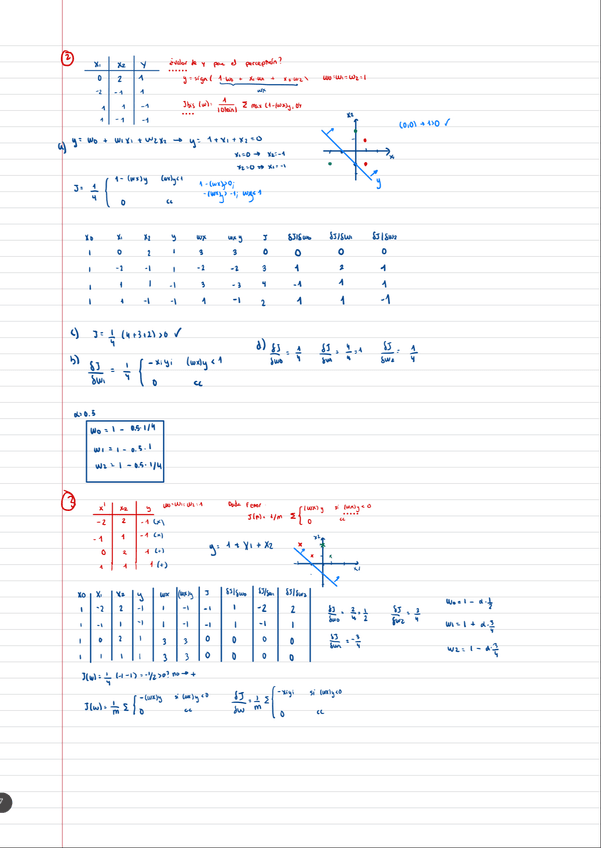 2
x1 x2 y
0 2 1
-2 -1 1
1 1 -1
1 -1 -1
y = sign ( 1·w0 + x1·w1 + x2·w2 ) w0=w1=w2=1
wx
a) y = w0 + w1x1 + w2x2 → y = 1+x1+x2=0
x1=0 → x2=-1
x2=0 → x1=-1
x2
x1
y
(0,0) +1>0 ✓
J = 1/4 { 1-(wx)y (wx)y<1
0 cc
1-(wx)y>0;
-(wx)y>-1; wxy<1
x0 x1 x2 y wx wxy J δJ/δw0 δJ/δw1 δJ/δw2
1 0 2 1 3 3 0 0 0 0
1 -2 -1 1 -2 -2 3 -1 2 1
1 1 1 -1 3 -3 4 -1 1 1
1 1 -1 -1 1 -1 2 1 1 -1
c) J = 1/4 (4+3+2) >0 ✓
b) δJ/δwi = 1/4 { -xiyi (wx)y<1
0 cc
d) δJ/δw0 = 1/4 δJ/δw1 = 4/4 = 1 δJ/δw2 = 1/4
α=0.5
w0 = 1 - 0.5·1/4
w1 = 1 - 0.5·1
w2 = 1 - 0.5·1/4
2
x1 x2 y w0=w1=w2=1
-2 2 -1 (x)
-1 1 -1 (x)
0 2 1 (o)
1 1 1 (o)
J(w) = 1/m Σ { (wx)y si (wx)y<0
0 cc
y = 1 + x1 + x2
x2
x1
x0 x1 x2 y wx (wx)y J δJ/δw0 δJ/δw1 δJ/δw2
1 -2 2 -1 1 -1 -1 1 -2 2
1 -1 1 -1 1 -1 -1 1 -1 1
1 0 2 1 3 3 0 0 0 0
1 1 1 1 3 3 0 0 0 0
δJ/δw0 = 2/4 = 1/2 δJ/δw2 = 3/4
δJ/δw1 = -3/4
w0 = 1 - α·1/2
w1 = 1 + α·3/4
w2 = 1 - α·3/4
J(w) = 1/4 (-1-1) = -1/2 >0? no → +
J(w) = 1/m Σ { -(wx)y si (wx)y<0
0 cc
δJ/δw = 1/m Σ { -xiyi si (wx)y<0
0 cc
7